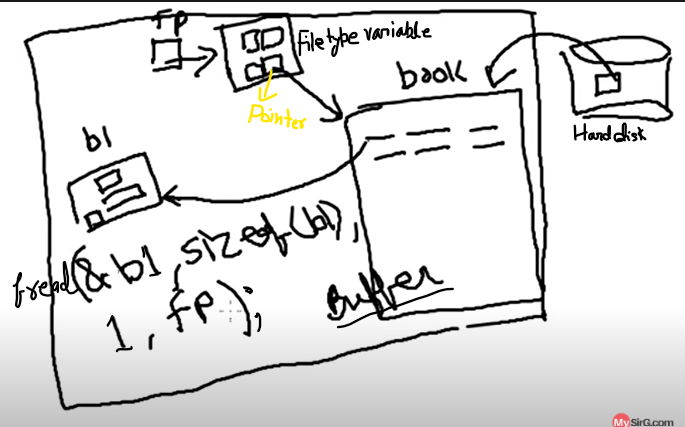 fp
File type variable
book
Pointer
Hard disk
b1
fread(&b1, sizeof(b1),
1, fp);
Buffer
MySirG.com